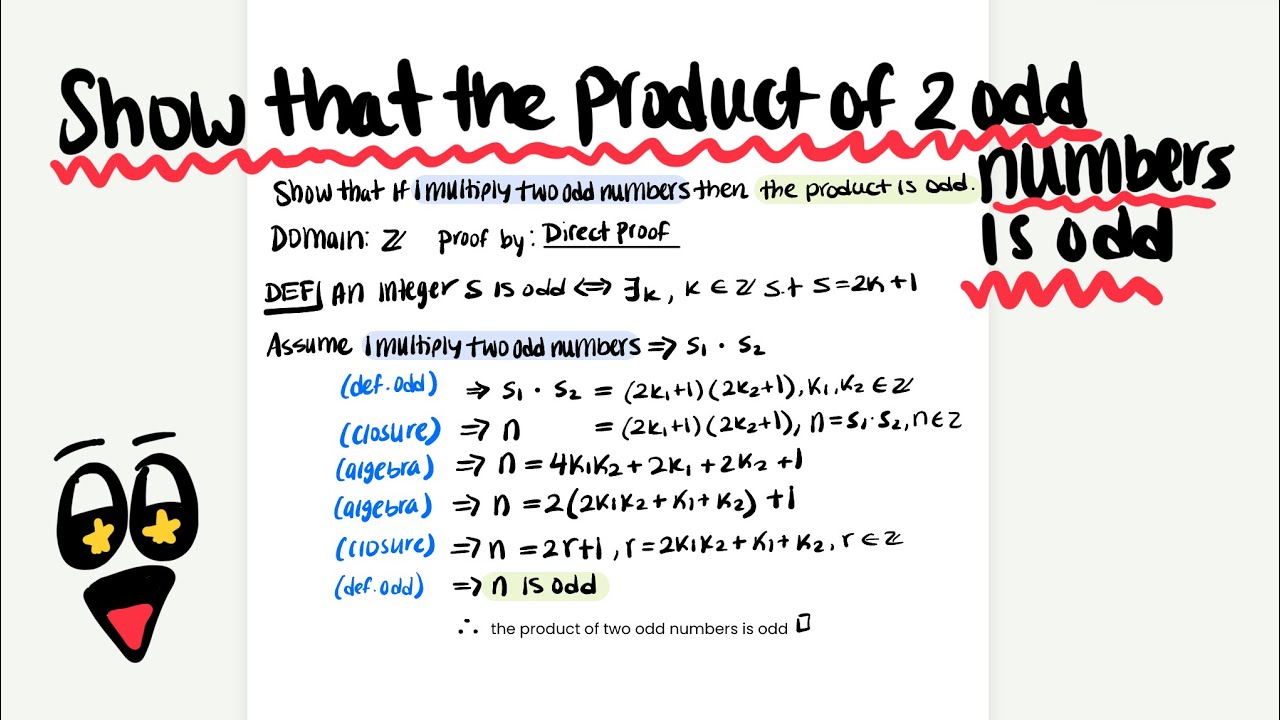 Show that the product of 2 odd
numbers
is odd
Show that if I multiply two odd numbers then the product is odd.
Domain: ℤ Proof by: Direct Proof
DEF| An integer s is odd ⟺ ∃k, k ∈ ℤ s.t s=2k+1
Assume I multiply two odd numbers ⇒ s₁ · s₂
(def.odd) ⇒ s₁ · s₂ = (2k₁+1)(2k₂+1), k₁,k₂ ∈ ℤ
(closure) ⇒ n = (2k₁+1)(2k₂+1), n=s₁·s₂, n∈ℤ
(algebra) ⇒ n = 4k₁k₂ + 2k₁ + 2k₂ + 1
(algebra) ⇒ n = 2(2k₁k₂ + k₁ + k₂) + 1
(closure) ⇒ n = 2r+1, r = 2k₁k₂ + k₁ + k₂, r ∈ ℤ
(def.odd) ⇒ n is odd
∴ the product of two odd numbers is odd □